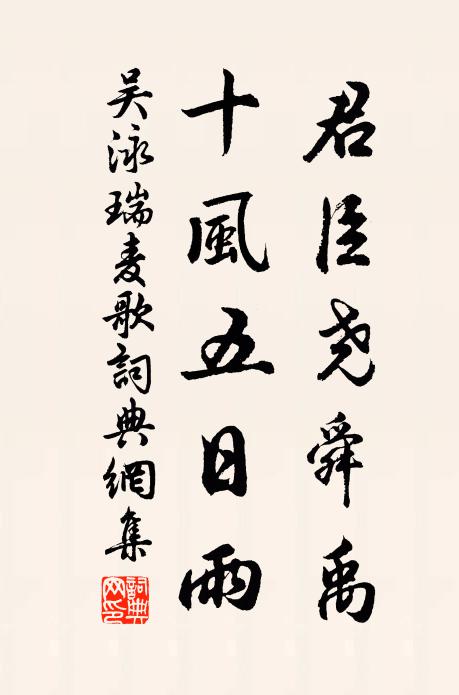 君臣尧舜禹
十風五日雨
吴泳瑞麦歌詞典網集
詞典
网印